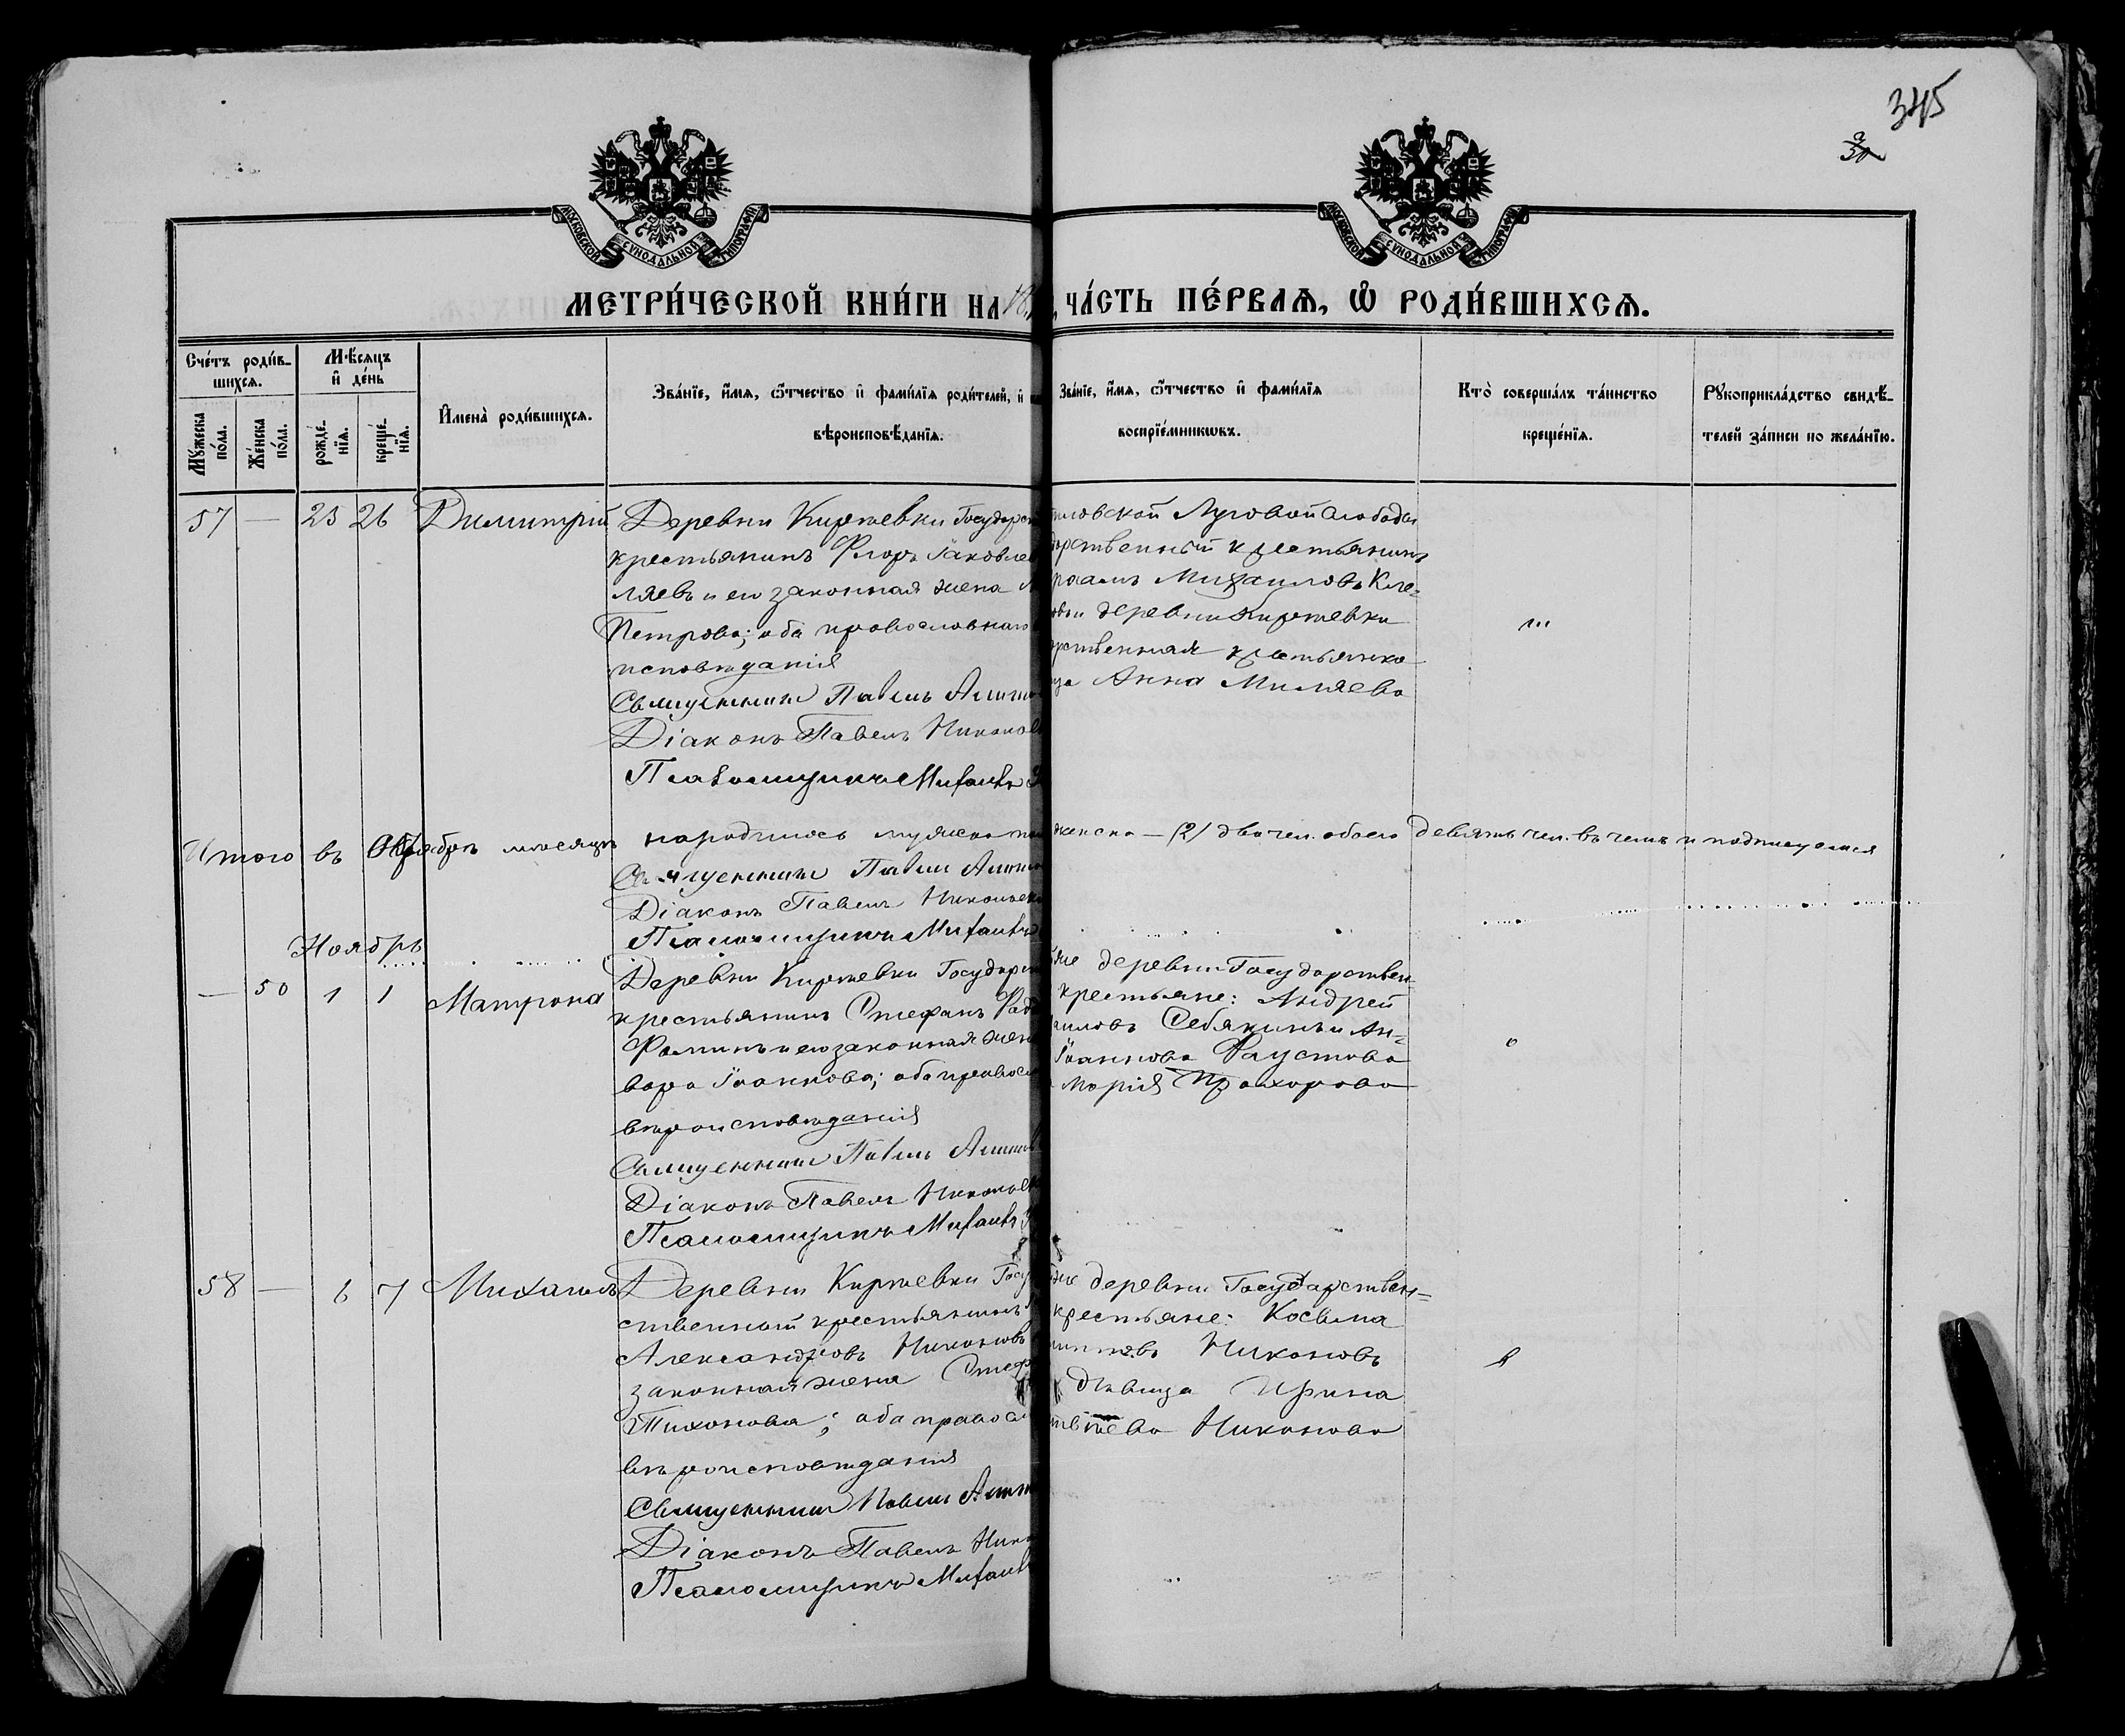 345
30
МОСКОВСКОЙ СУНОДАЛЬНОЙ ТИПОГРАФІИ
МОСКОВСКОЙ СУНОДАЛЬНОЙ ТИПОГРАФІИ
МЕТРИ́ЧЕСКОЙ КНИ́ГИ НА 18
ЧА́СТЬ ПЕ́РВАѦ, Ѡ҆ РОДИ́ВШИХСѦ.
Сче́тъ роди́в-
шихсѧ.
Мꙋ́жеска по́ла.
Же́нска по́ла.
Мѣ́сяцъ
и҆ де́нь
рожде́-
нїѧ.
креще́-
нїѧ.
И҆мена̀ роди́вшихсѧ.
Зва́нїе, и҆́мѧ, ѻ҆́тчество и҆ фами́лїѧ роди́телей, и҆
вѣроисповѣ́данїѧ.
Зва́нїе, и҆́мѧ, ѻ҆́тчество и҆ фами́лїѧ
воспрїе́мникѡвъ.
Кто̀ соверша́лъ та́инство
креще́нїѧ.
Рꙋкоприкла́дство свидѣ́-
телей за́писи по жела́нїю.
57 — 25 26 Димитрій
Деревни Киржевки Государс
крестьянинъ Флоръ Іаковлев
ляевъ и его законная жена
Петрова; оба православнаго
исповѣданія
Священникъ Павелъ
Діаконъ Павелъ Николь
Псаломщикъ Михаилъ
ловской Луговой Слободы
дарственный крестьянинъ
раамъ Михаиловъ Кле-
деревни Киржевки
дарственная крестьянка
ца Анна Миляева
Итого въ Октябрѣ мѣсяцѣ народилось мужска по
женска — (2) два чел. обоего девять чел. въ чемъ и подписуемся
Священникъ Павелъ
Діаконъ Павелъ Никольск
Псаломщикъ Михаилъ
Ноябрь
— 50 1 1 Матрона
Деревни Киржевки Государст
крестьянинъ Стефанъ
Фоминъ и его законная жен
вара Іоаннова; оба правосл
вѣроисповѣданія
Священникъ Павелъ
Діаконъ Павелъ Никольск
Псаломщикъ Михаилъ
деревни Государствен-
крестьяне: Андрей
аиловъ Себякинъ и Ан-
Іоаннова Фаустова
Марія Прохорова
58 — 6 7 Михаилъ
Деревни Киржевки Госу
ственный крестьянинъ
Александровъ Никоновъ
законная жена Стеф
Тихонова; оба правосл
вѣроисповѣданія
Священникъ Павелъ
Діаконъ Павелъ Нико
Псаломщикъ Михаилъ
деревни Государствен-
крестьяне: Косьма
Никоновъ
дѣвица Ирина
Никонова